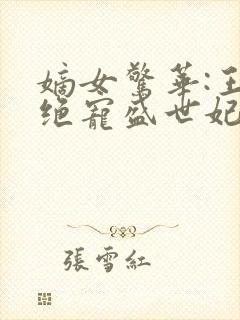 嫡女驚華:王
絕寵盛世妃
張雪紅